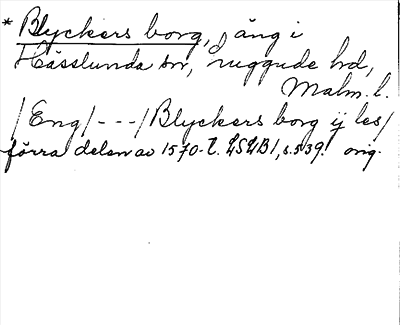 * Blyckers borg, äng i
Hässlunda sn, Luggude hd,
Malm. l.
/Eng/---/Blyckers borg ij les/
förra delen av 1570-t. LSLB1, s. 539. orig.